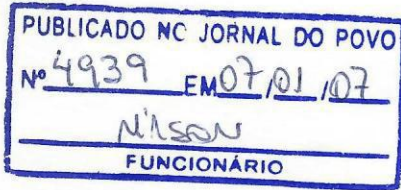 PUBLICADO NO JORNAL DO POVO
Nº 4939 EM 07/01/07
Nilson
FUNCIONÁRIO